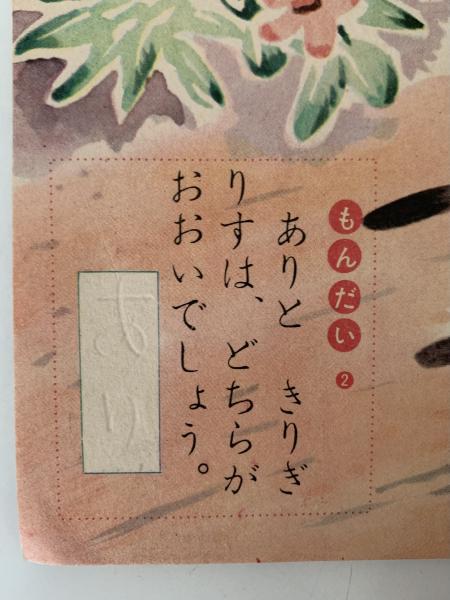 もんだい 2
ありと きりぎ
りすは、どちらが
おおいでしょう。
あり